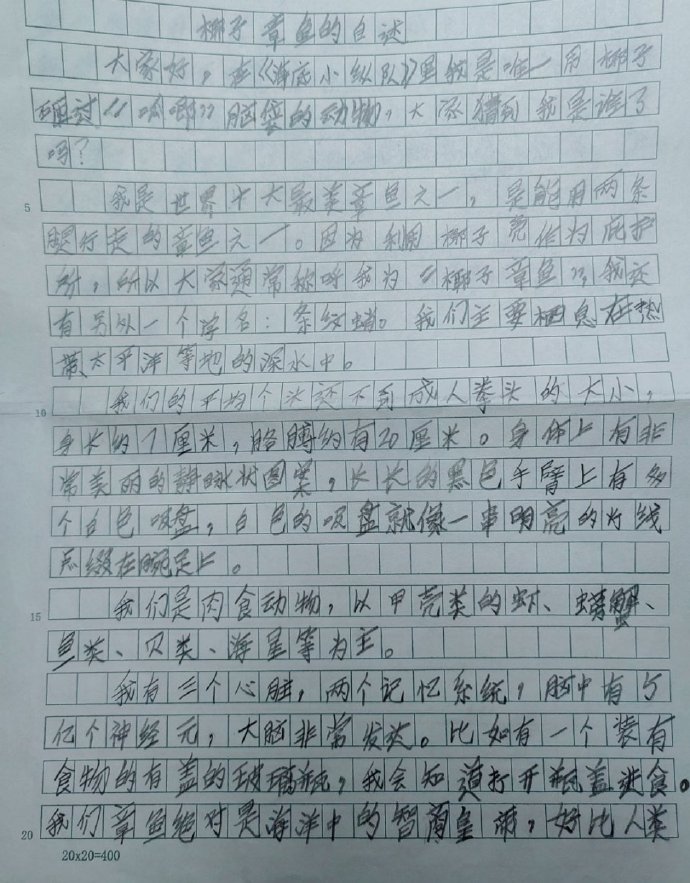 椰子章鱼的自述
大家好，在《海底小纵队》里我是唯一用椰子
砸过"呱唧"脑袋的动物，大家猜到我是谁了
吗？
5
我是世界十大最美章鱼之一，是能用两条
腿行走的章鱼之一。因为利用椰子壳作为庇护
所，所以大家通常称呼我为"椰子章鱼"，我还
有另外一个学名：条纹蛸。我们主要栖息在热
带太平洋等地的深水中。
10
我们的平均个头还不到成人拳头的大小，
身长约7厘米，胳膊约有20厘米。身体上有非
常美丽的静脉状图案，长长的黑色手臂上有多
个白色吸盘，白色的吸盘就像一串明亮的灯线
点缀在腕足上。
15
我们是肉食动物，以甲壳类的虾、螃蟹、
鱼类、贝类、海星等为主。
我有三个心脏，两个记忆系统，脑中有5
亿个神经元，大脑非常发达。比如有一个装有
食物的有盖的玻璃瓶，我会知道打开瓶盖进食。
20
我们章鱼绝对是海洋中的智商皇帝，好比人类
20x20=400